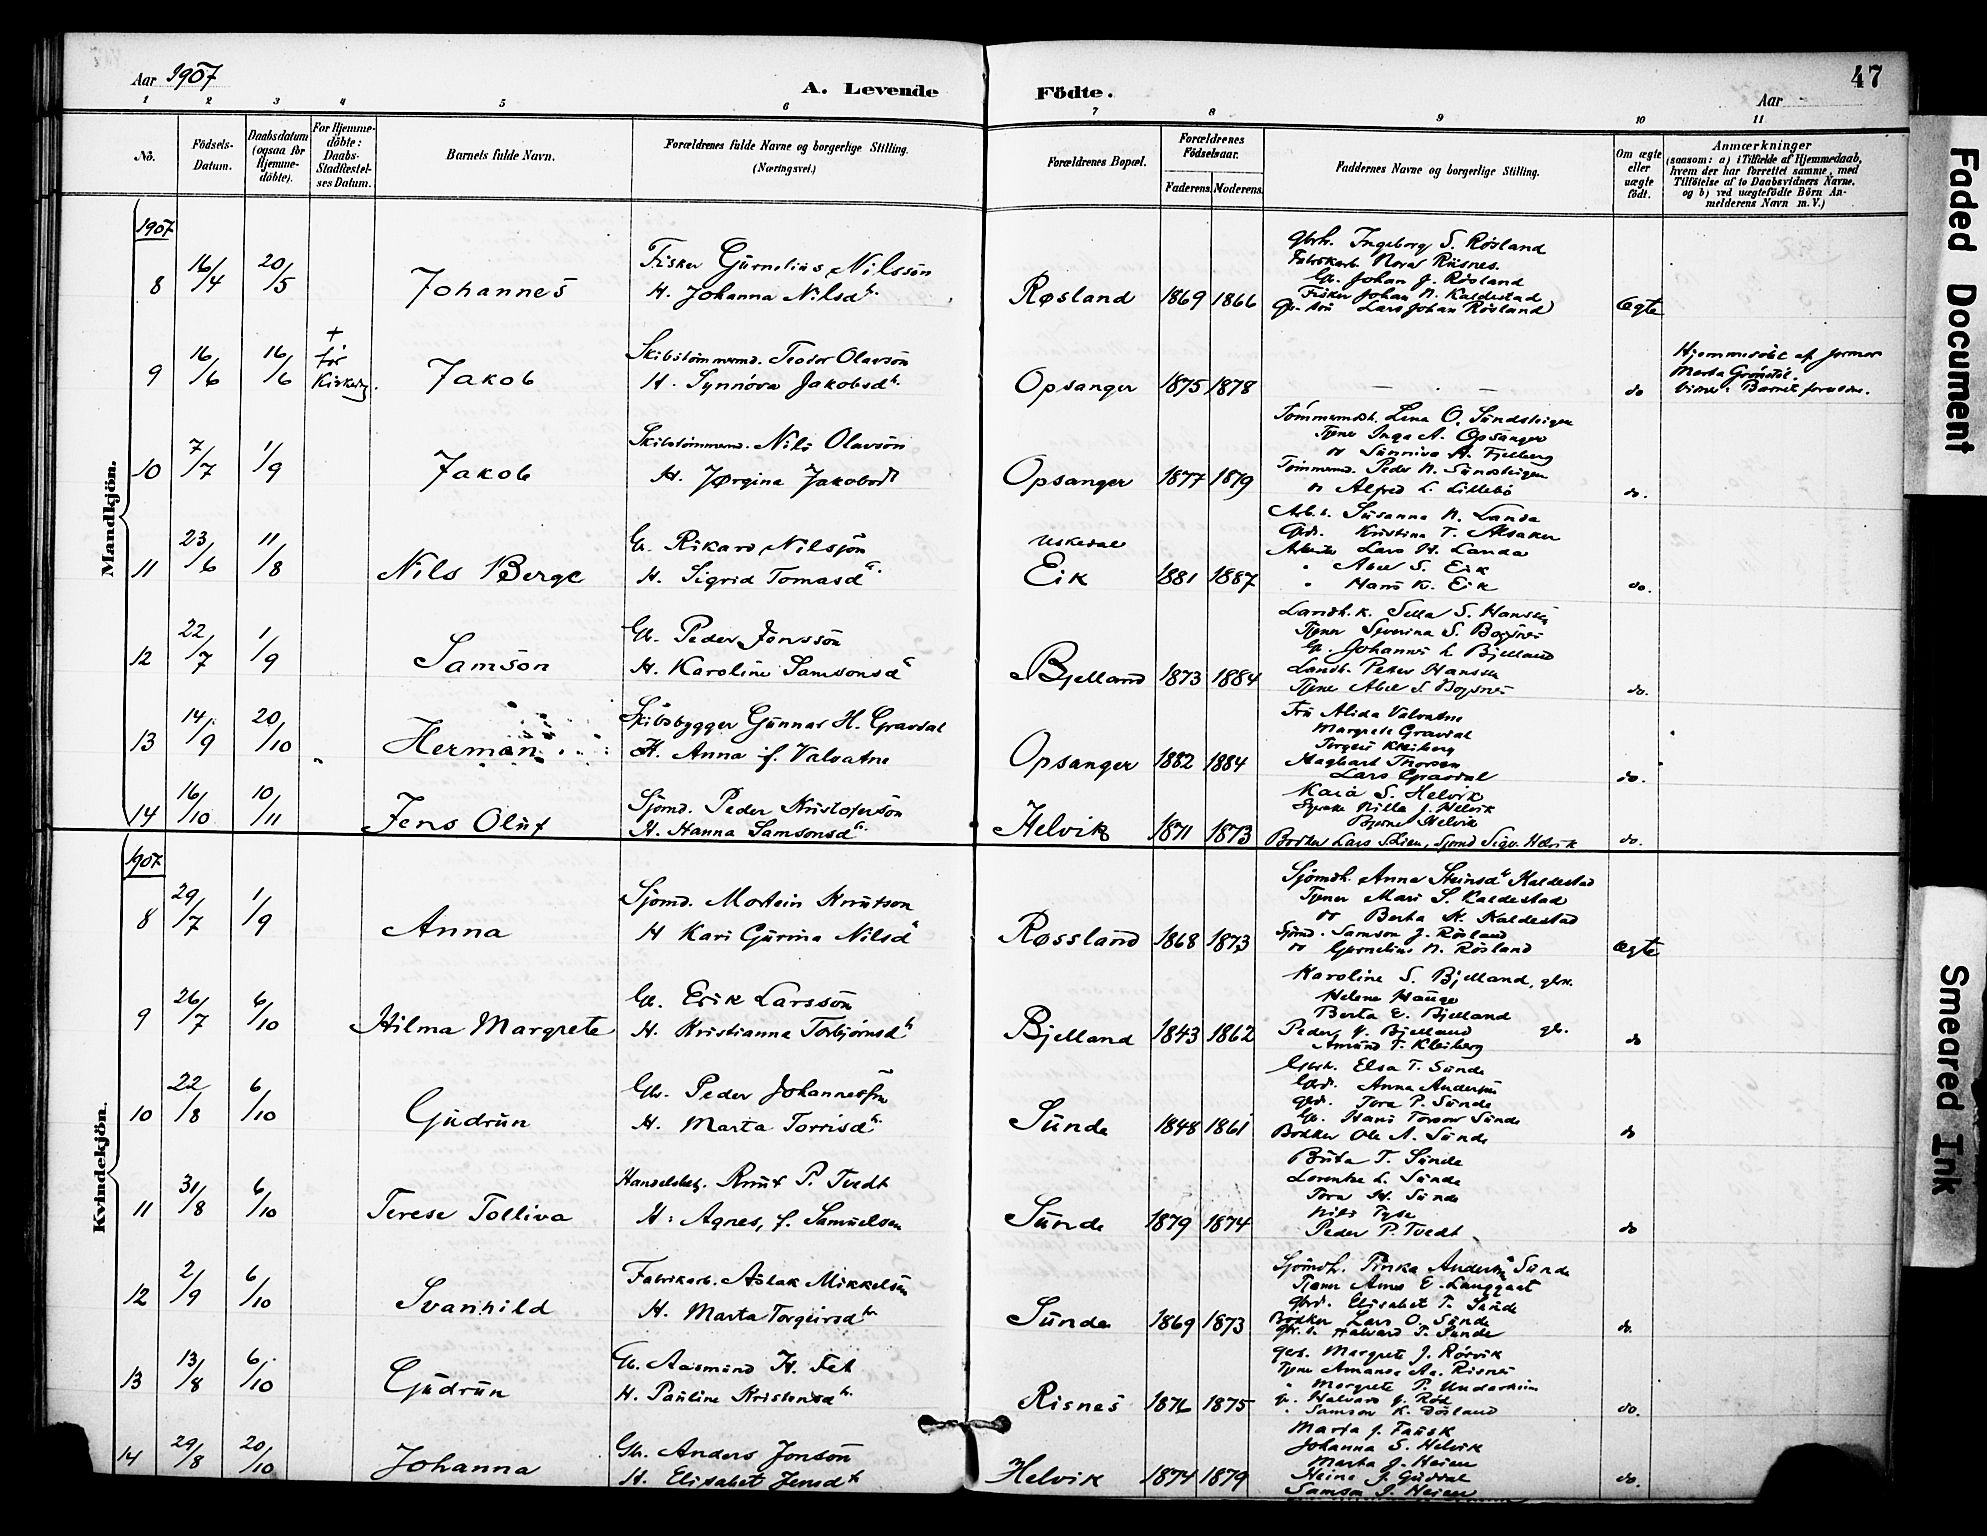 Aar 1907
A. Levende Födte.
Aar
47
1 2 3 4 5 6 7 8 9 10 11
No.
Födsels-Datum.
Daabsdatum (ogsaa for Hjemme-döbte).
For Hjemme-döbte: Daabs-Stadfæstel-ses Datum.
Barnets fulde Navn.
Forældrenes fulde Navne og borgerlige Stilling. (Næringsvei.)
Forældrenes Bopæl.
Forældrenes Födselsaar.
Faderens. Moderens.
Faddernes Navne og borgerlige Stilling.
Om ægte eller uægte födt.
Anmærkninger
(saasom: a) i Tilfælde af Hjemmedaab,
hvem der har forrettet samme, med
Tilföielse af to Daabsvidners Navne.
og b) ved uægtefödte Börn An-
melderens Navn m. V.)
Mandkjön.
1907
8 16/4 20/5 Johannes
Fisker Gürnelius Nilssön
H. Johanna Nilsdtr.
Røsland 1869 1866
Gbrh. Ingeborg S. Rösland
Fabrikarb. Risnes.
Gb. Johan J. Rösland
Fisker Johan N. Kaldestad
Lars Johan Rösland
Ægte
9 16/6 16/6 + før Kirkedg. Jakob
Skibstömmermd. Teodor Olavsön
H. Synnöva Jakobsdtr.
Opsanger 1875 1878
— - —
do
Hjemmedöbt af
Marta
Barnets forældre.
10 7/7 1/9 Jakob
Skibstömmermd. Nils Olavsön
H. Jørgina Jakobsdtr
Opsanger 1877 1879
Lina O. Sündsteigen
Tjener Inga A. Opsanger
do Sünniva A. Fjelberg
Tömmermd. Peder N. Sündsteigen
do Alfred L. Lillebö
do.
11 23/6 11/8 Nils Berge
Gb. Rikard Nilssön
H. Sigrid Tomasdtr.
Uskedal
Eik 1881 1887
Süsanna N. Landa
Kristina T. Alsaker
Arbeider Lars H. Landa
" Abel S. Eik
" Hans K. Eik
do.
12 22/7 1/9 Samson
Gb. Peder Jonssön
H. Karoline Samsonsdtr
Bjelland 1873 1884
Landh. k. Sella S. Hanssen
Tjener Severina S. Bogsnes
Gb. Johannes L Bjelland
Landh. Peter Hanssen
Tjener Abel S Bogsnes
do.
13 14/9 20/10 Herman
Skibsbygger Günnar H. Gravdal
H. Anna f. Valvatne
Opsanger 1882 1884
Frü Alida Valvatne
Margrete Gravdal
Kleiberg
Hagbart Thorsen
Lars Gravdal
do.
14 16/10 10/11 Jens Oluf
Sjömd. Peder Kristofersön
H. Hanna Samsonsdtr.
Helvik 1871 1873
Kaia S. Helvik
Nilla J. Helvik
Bjarne Helvik
Bödker Lars Skien, Sjömd Sigv. Helvik
do.
Kvindekjön.
1907
8 29/7 1/9 Anna
Sjömd. Mortein Knutson
H Kari Gürina Nilsdtr
Røssland 1868 1873
Sjömdh. Anna Steinsdtr Kaldestad
Tjener Mari S. Kaldestad
do Berta K. Kaldestad
Sjömd. Samson J. Rösland
do Gürnelius N. Rösland
Ægte
9 26/7 6/10 Hilma Margrete
Gb. Erik Larssön
H. Kristianna Torbjörnsdtr
Bjelland 1843 1862
Karoline S. Bjelland, gbr.
Helene Hauge
Berta E. Bjelland
Peder J. Bjelland gb.
Amünd T. Kleiberg
do
10 22/8 6/10 Güdrün
Gb. Peder Johannessön
H. Marta Torrisdtr.
Sünde 1848 1861
Gbrh. Elsa T. Sünde
Anna Andersen
Tora P. Sünde
Gb. Hans Torson Sünde
Bödker Ole A. Sünde
do
11 31/8 6/10 Terese Tolliva
Handelsbetj. Knüt P. Tvedt
H: Agnes, f. Samüelsen
Sünde 1879 1874
Brita T. Sünde
Lorentse L. Sünde
Tora H. Sünde
Nils Tyse
Peder P. Tvedt
do
12 2/9 6/10 Svanhild
Fabrikarb. Aslak Mikkelsen
H. Marta Torgeirsdtr
Sünde 1869 1873
Sjömdh. Tinka Andersen Sünde
Tjener Anna E. Langgaat
Elisabet T. Sünde
Bödker Lars O. Sünde
Halvard T. Sünde
do.
13 13/8 6/10 Güdrün
Gb. Aasmünd H. Fet
H. Paüline Kristensdtr.
Risnes 1876 1875
Margrete J. Rörvik
Tjener Amanda Aa. Risnes
" Margrete P. Undarheim
Halvard J. Röd
Samson K. Rösland
do.
14 29/8 20/10 Johanna
Gb. Anders Jonsön
H. Elisabet Jensdtr
Helvik 1874 1879
Marta J. Fausk
Johanna S. Helvik
Marta J. Heien
Heine J. Güddal
Samson J. Heien
do.
Faded Document
Smeared Ink